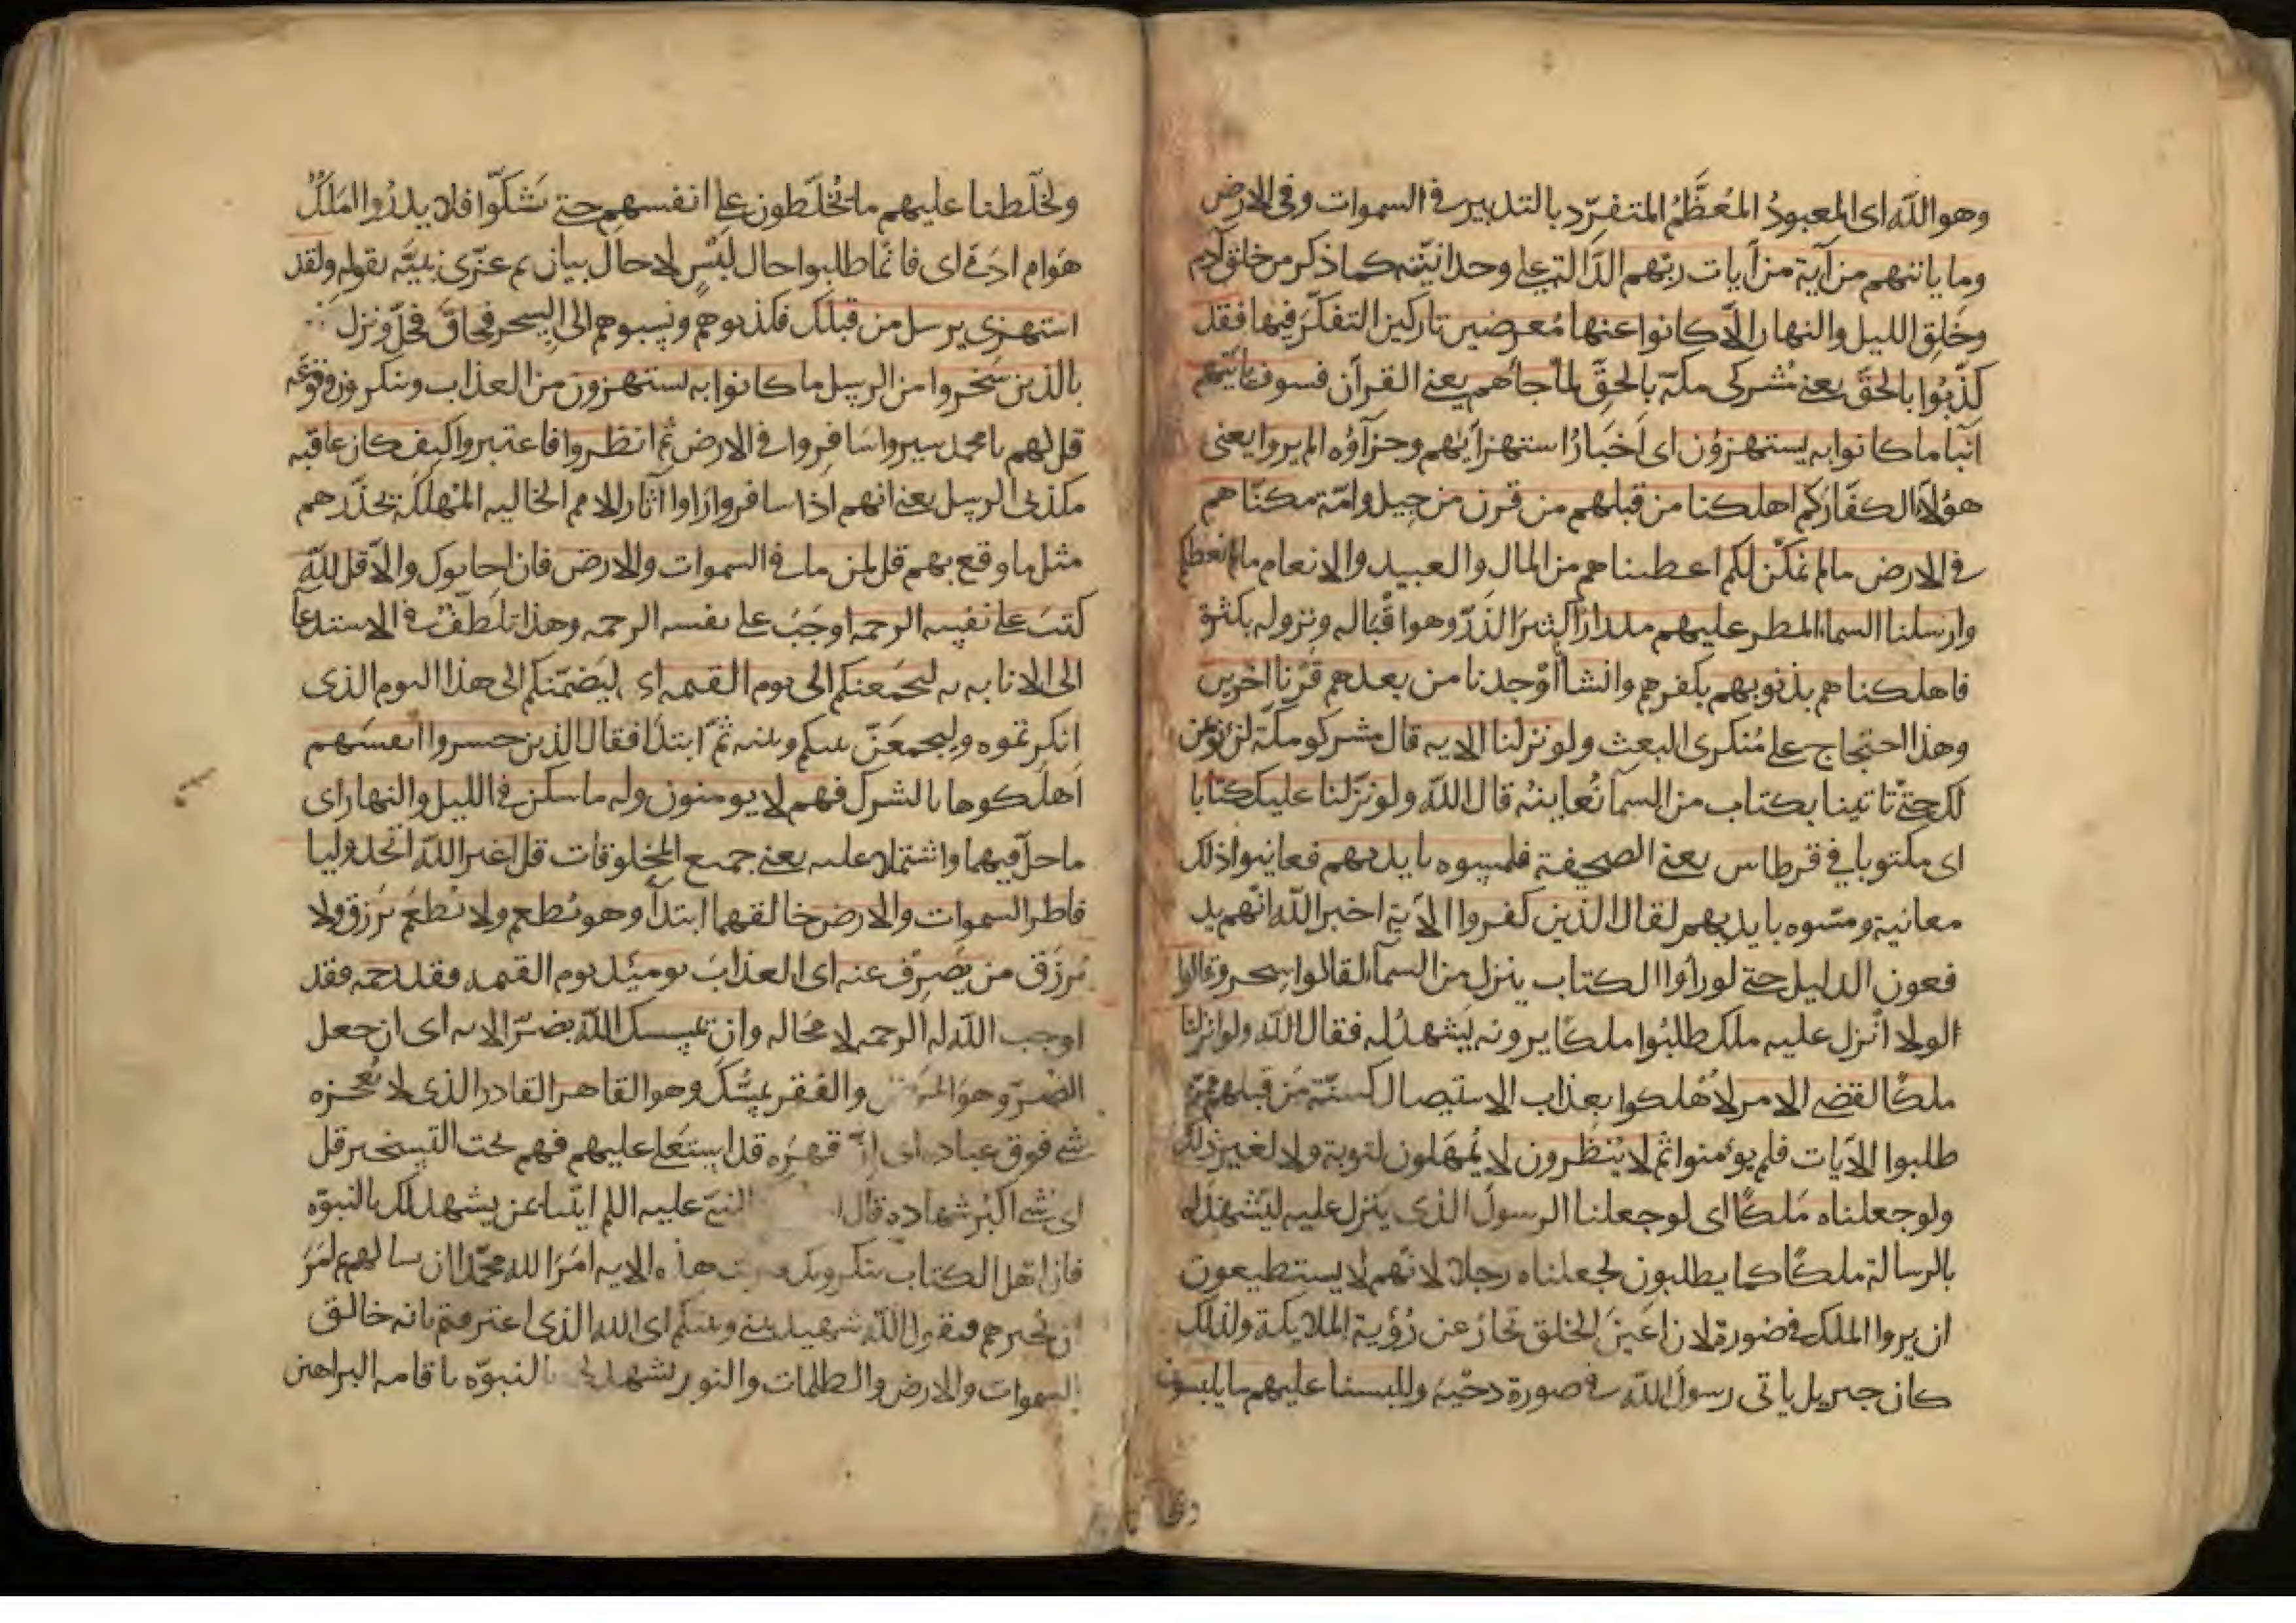 وهو الله اى المعبودُ المُعَظَّمُ المتفرّد بالتدبير فى السموات وفى الارض
وما ياتيهم من آية من آيات ربهم الدّالة على وحدانيّته كما ذكر من خلق آدم
وخَلق الليل والنهار الّا كانوا عنها مُعرضين تاركين التفكّر فيها فقد
كذّبُوا بالحقّ يعنى مُشركى مكّة بالحقّ لما جأهم يعنى القرآن فسوف ياتيهم
انبآ ما كانوا به يستهزؤن اى اَخبَارُ استهزآئهم وجزآؤه الم يروا يعنى
هؤلآ الكفّار كم اهلكنا من قبلهم من قرن من جيل وامّة مكنّاهم
فى الارض ما لم نمكّن لكم اعطيناهم من المال والعبيد والانعام ما لم نعطكم
وارسلنا السمآ المطر عليهم مدرارًا كثير الدّرّ وهو اقباله ونزوله بكثرة
فاهلكناهم بذنوبهم بكفرهم وانشأنا اوْجدنا من بعدهم قَرْنا آخرين
وهذا احتجاج على مُنكرى البعث ولو نزلنا الايه قال مشركو مكّة لن نؤمن
لك حتى تاتينا بكتاب من السمآ نُعاينهُ قال الله ولو نزّلنا عليك كتابا
اى مكتوبا فى قرطاس يعنى الصحيفة فلمسوه بايديهم فعاينوا ذلك
معاينة ومسّوه بايديهم لقال الذين كفروا الآية اخبر الله انّهم يد
فعون الدليل حتى لو رأوا الكتاب ينزل من السمآ لقالوا سحر وقالوا
لولا اُنزل عليه ملك طلبُوا ملكًا يرونه يَشهدُ له فقال الله ولو انزلنا
ملكًا لقضى الامر لاُهلكوا بعذاب الاستيصال كسنّة مَن قبلهم ممّن
طلبوا الآيات فلم يؤمنوا ثم لا يُنظَرون لا يُمهَلون لتوبة ولا لغير ذلك
ولو جعلناه مَلكًا اى لو جعلنا الرسولَ الذى ينزل عليه ليَشهدَ له
بالرسالة ملكًا كما يطلبون لجعلناه رجلا لانّهم لا يستطيعون
ان يروا الملك فى صورة لان اَعينَ الخلق تحارُ عن رُؤية الملايكة ولذلك
كان جبريل ياتى رسولَ الله فى صورة دحْية وللبسنا عليهم ما يلبسون
ولخلّطنا عليهم ما يُخلّطون على انفسهم حتى يشكّوا فلا يدرُوا اَمَلَكٌ
هوام ادمىّ اى فانما طلبوا حال لَبْسٍ لا حال بيان ثم عزّى نبيّه بقوله ولقد
استهزى برسل من قبلك فكذبوهم ونسبوهم الى السحر فحاق فحلّ ونزل
بالذين سَخروا من الرسل ما كانوا به يستهزون من العذاب وينكرون وقوعَه
قل لهم يا محمد سيروا سَافِروا فى الارض ثم انظروا فاعتبروا كيف كان عاقبه
مكذبى الرسل يعنى انهم اذا سافروا رَاوا آثار الامم الخاليه المهلكة يحذّرهم
مثل ما وقع بهم قل لمن ما فى السموات والارض فان اجابوك والّا قل لله
كتبَ على نفسه الرحمه اوجَبَ على نفسه الرحمه وهذا تلطّفٌ فى الاستدعا
الى الانابه ليجمعنكم الى يوم القيمه اى ليَضمّنكم الى هذا اليوم الذى
انكرتموه وليجمعَنّ بينكم وبينه ثمّ ابتدأ فقال الذين خسروا انفسَهم
اَهلكوها بالشرك فهم لا يومنون وله ما سكن فى الليل والنهار اى
ما حلّ فيهما واشتملا عليه يعنى جميع المخلوقات قل اغير الله اتخذ وليا
فاطر السموات والارض خالقهما ابتدآ وهو يُطعِم ولا يُطعَم يَرزق ولا
يُرزَق من يُصرف عنه اى العذابَ يوميئذ يوم القيمه فقد رحمه فقد
اوجب الله له الرحمه لا مَحَاله وان يمسسك الله بضرّ الايه اى ان جعل
الضرّ وهو المرض والفقر يمسّكَ وهو القاهر القادر الذى لا يُعجزه
شى فوق عباده اى انّ قهرَه قد استعلى عليهم فهم تحت التسخير قل
اى شى اكبر شهاده قال النبىّ عليه اللم ايتنا بمن يشهد لك بالنبوّه
فان اهل الكتاب ينكرونك هذه الايه امَرَ الله محمّدا ان يسالهم ثم امَرَ
ان يُخبرهم فيقول الله شهيد بينى وبينكم اى الله الذى اعترفتم بانه خالق
السموات والارض والظلمات والنور يشهد لى بالنبوّه باقامه البراهين